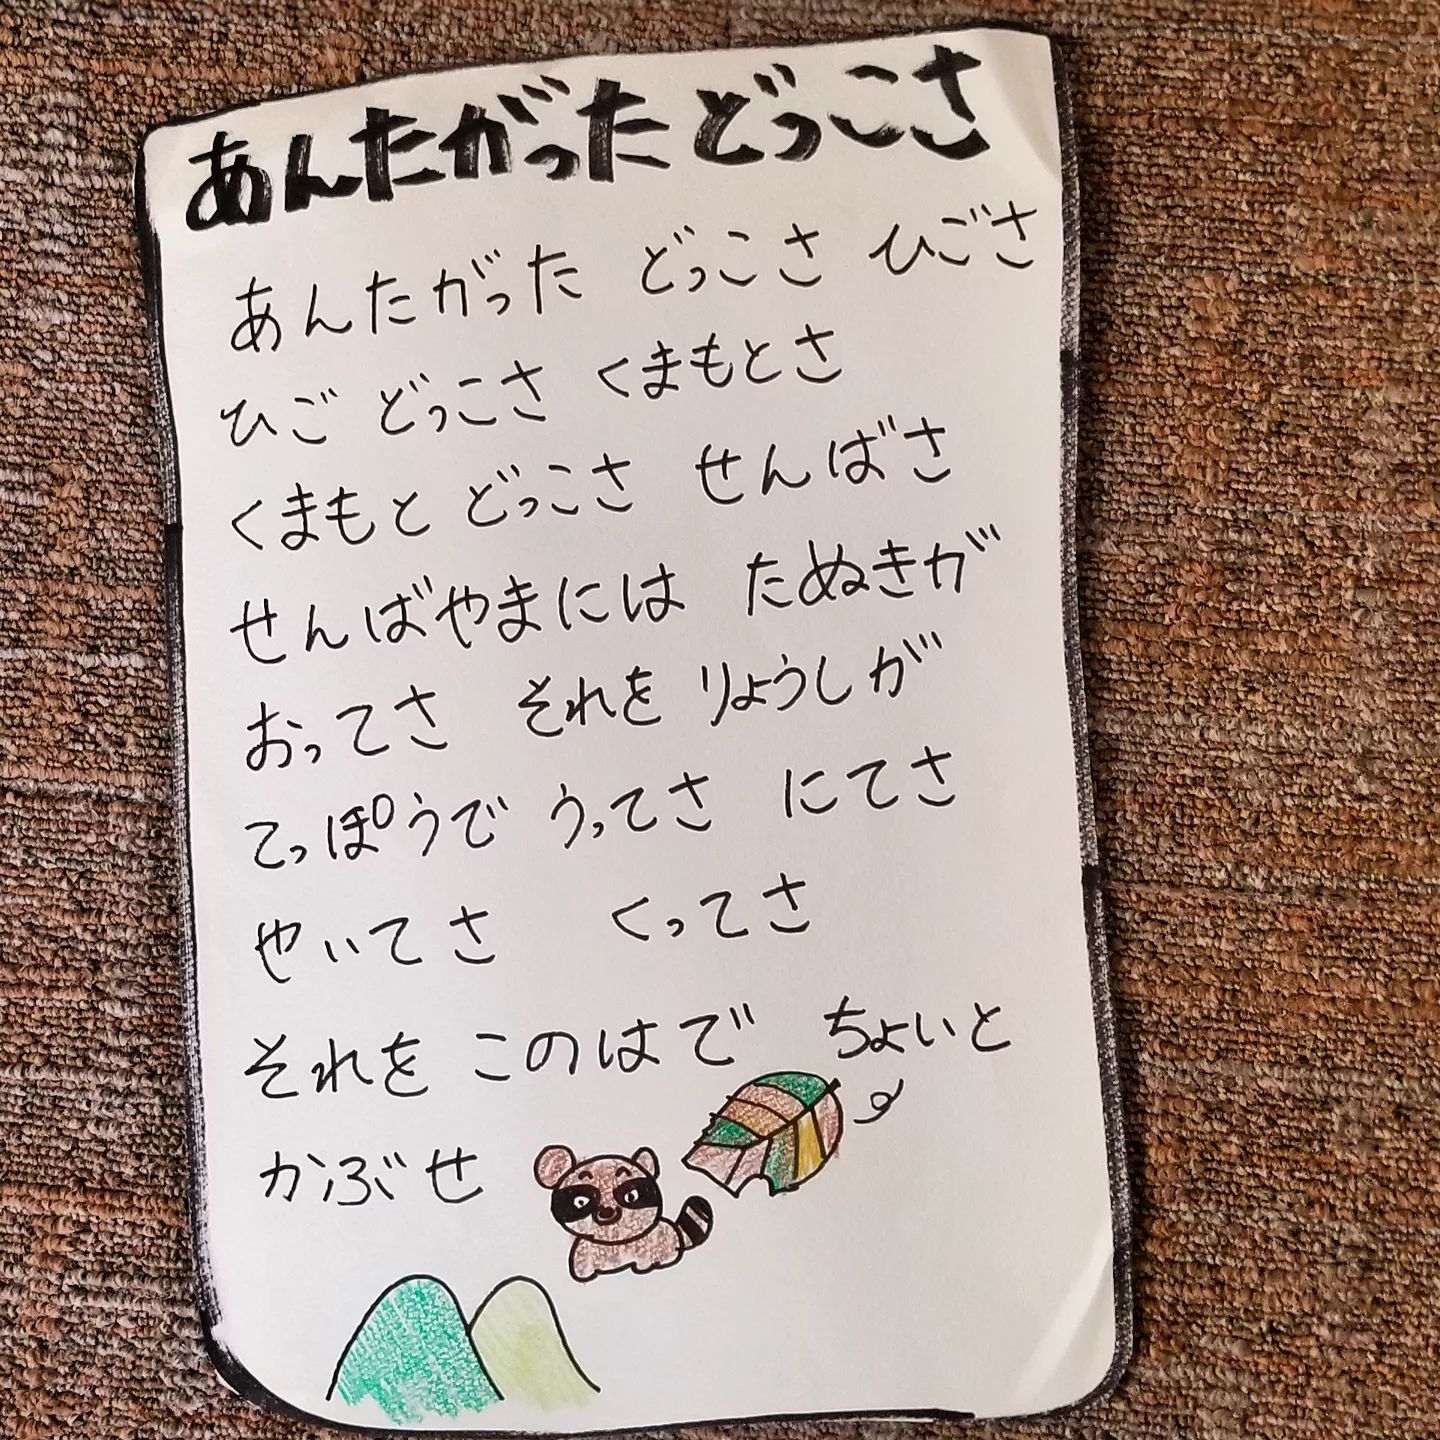 あんたがった どっこさ
あんたがった どっこさ ひごさ
ひご どっこさ くまもとさ
くまもと どっこさ せんばさ
せんばやまには たぬきが
おってさ それを りょうしが
てっぽうで うってさ にてさ
やいてさ くってさ
それを このはで ちょいと
かぶせ